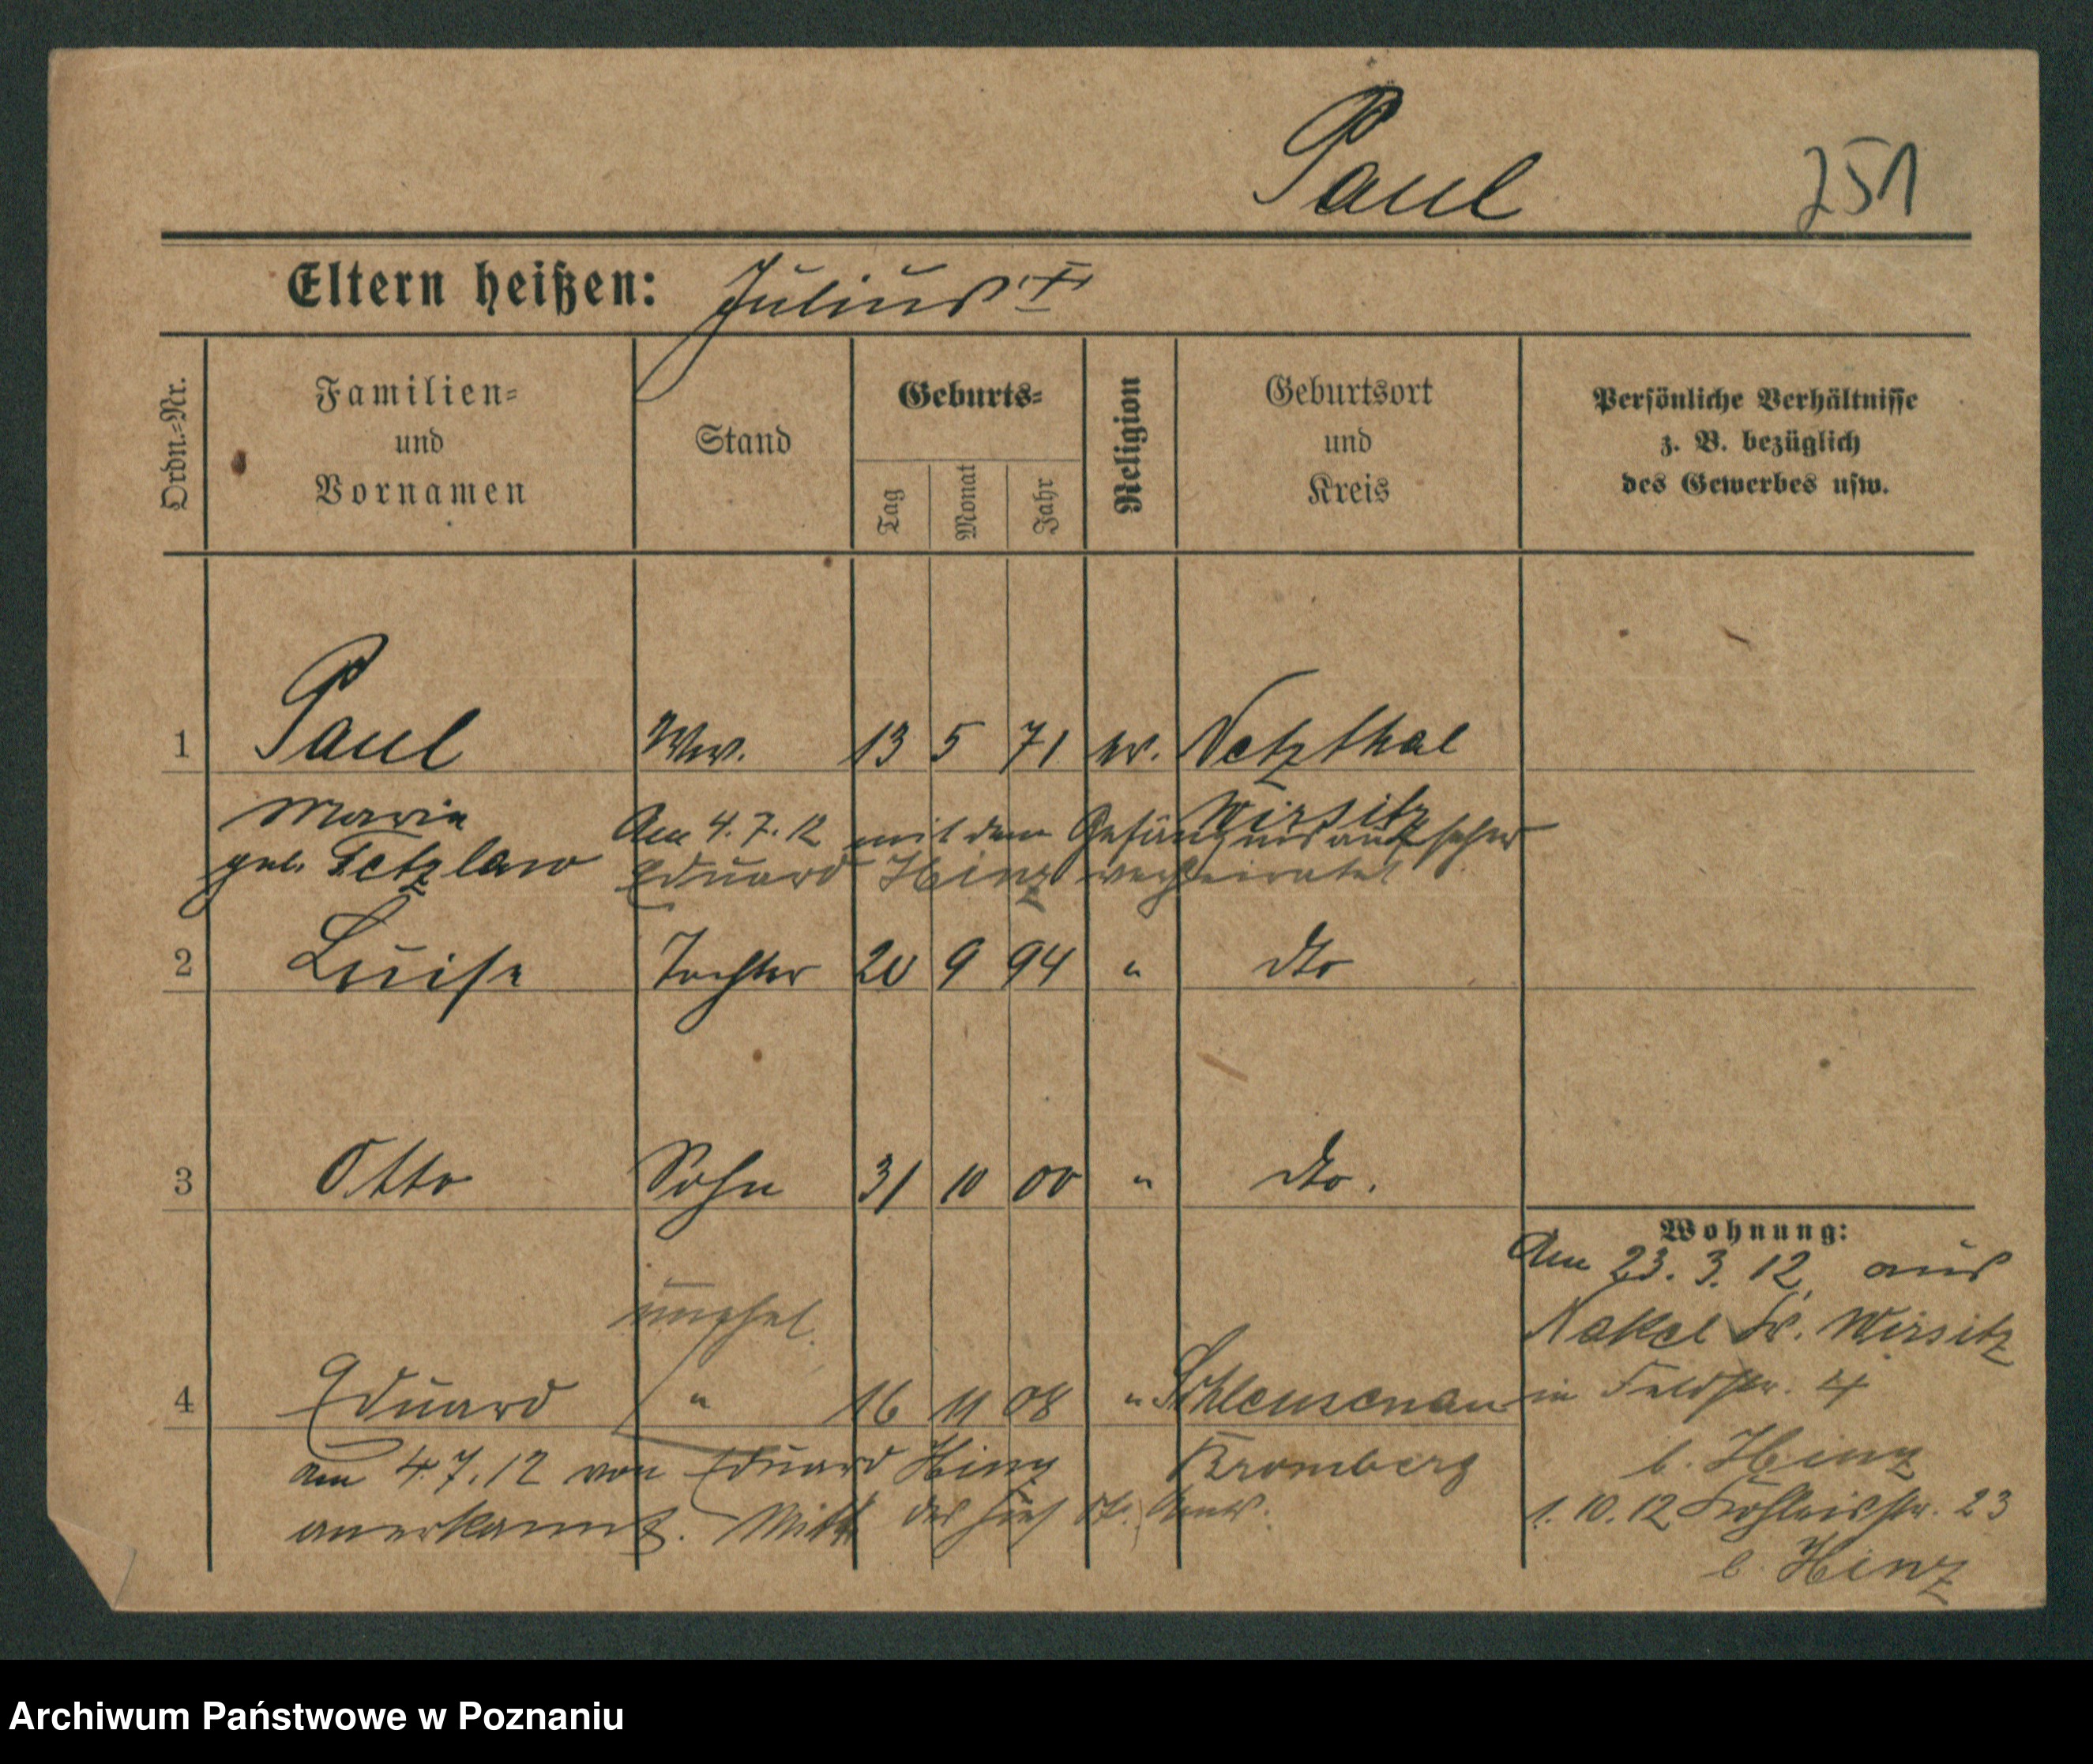 Paul 251
Eltern heißen: Julius †
Ordn.-Nr.
Familien-
und
Vornamen
Stand
Geburts-
Tag
Monat
Jahr
Religion
Geburtsort
und
Kreis
Persönliche Verhältnisse
z. B. bezüglich
des Gewerbes usw.
1 Paul Ww. 13 5 71 ev. Netzthal
Wirsitz
Marie
geb. Tetzlaw
Am 4.7.12 mit dem Gefängnisaufseher
Eduard Hinz verheiratet
2 Luise Tochter 20 9 94 " dto
3 Otto Sohn 31 10 00 " dto.
unehel.
4 Eduard " 16 11 08 " Schleusenau
Bromberg
am 4.7.12 von Eduard Hinz
anerkannt. Mitt. des St. Amts.
Wohnung:
Am 23.3.12, aus
Nakel Kr. Wirsitz
in Feldstr. 4
b. Hinz
1.10.12 23
b. Hinz
Archiwum Państwowe w Poznaniu